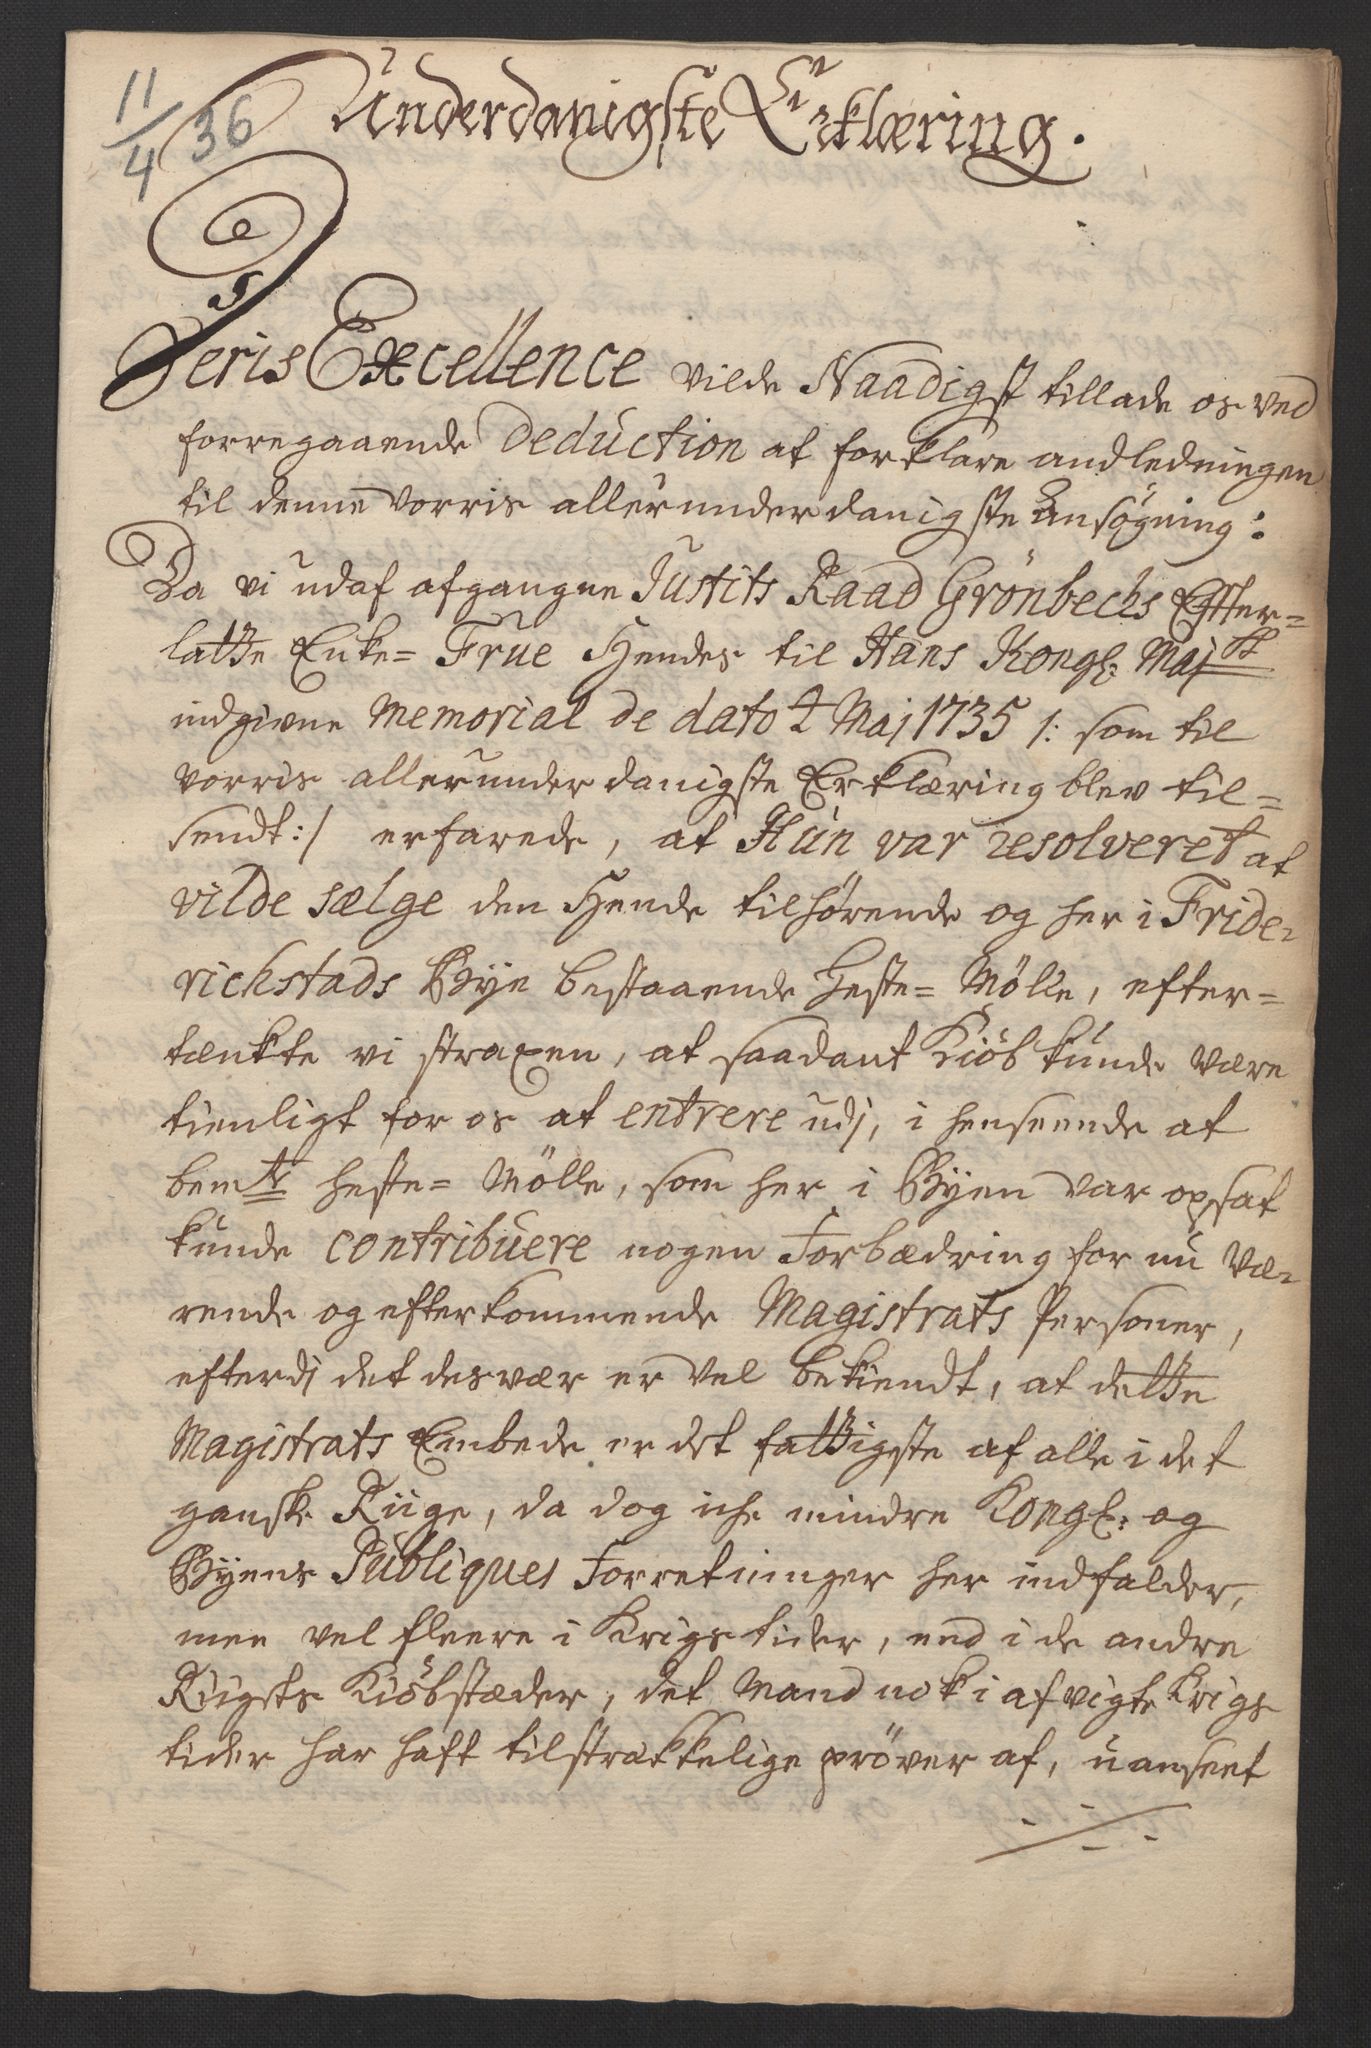 11/4 36
Underdanigste Erklæring.
Deris Excellence vilde Naadigst tillade os ved
forregaaende Deduction at forklare andledningen
til denne vorris allerunderdanigste Ansøgning:
Da vi udaf afgangne Justits Raad Grönbechs Effter=
latte Enke= Frue Hendes til Hans Kongl: Majst
indgivne Memorial de dato 2 Maj 1735 /: som til
vorris allerunderdanigste Erklæring blev til=
sendt :/ erfarede, at Hun var resolveret at
vilde sælge den Hende tilhørende og her i Fride=
richstads Bye bestaaende Heste= Mölle, efter=
tænkte vi straxen, at saadant Kiöb kunde være
tienligt for os at entrere udj, i henseende at
bemte heste= Mölle, som her i Byen var opsat
kunde contribuere nogen Forbædring for nu væ=
rende og efterkommende Magistrats Personer,
efterdj det desvær er vel bekiendt, at dette
Magistrats Embede er det fattigste af alle i det
ganske Riige, da dog iche mindre Kongl: og
Byens Publiques Forretninger her indfalder,
men vel fleere i Krigstider, end i de andre
Riigets Kiöbstæder, det Mand nok i afvigte Krigs
tider har haft tilstrækkelige pröver af, uanseet